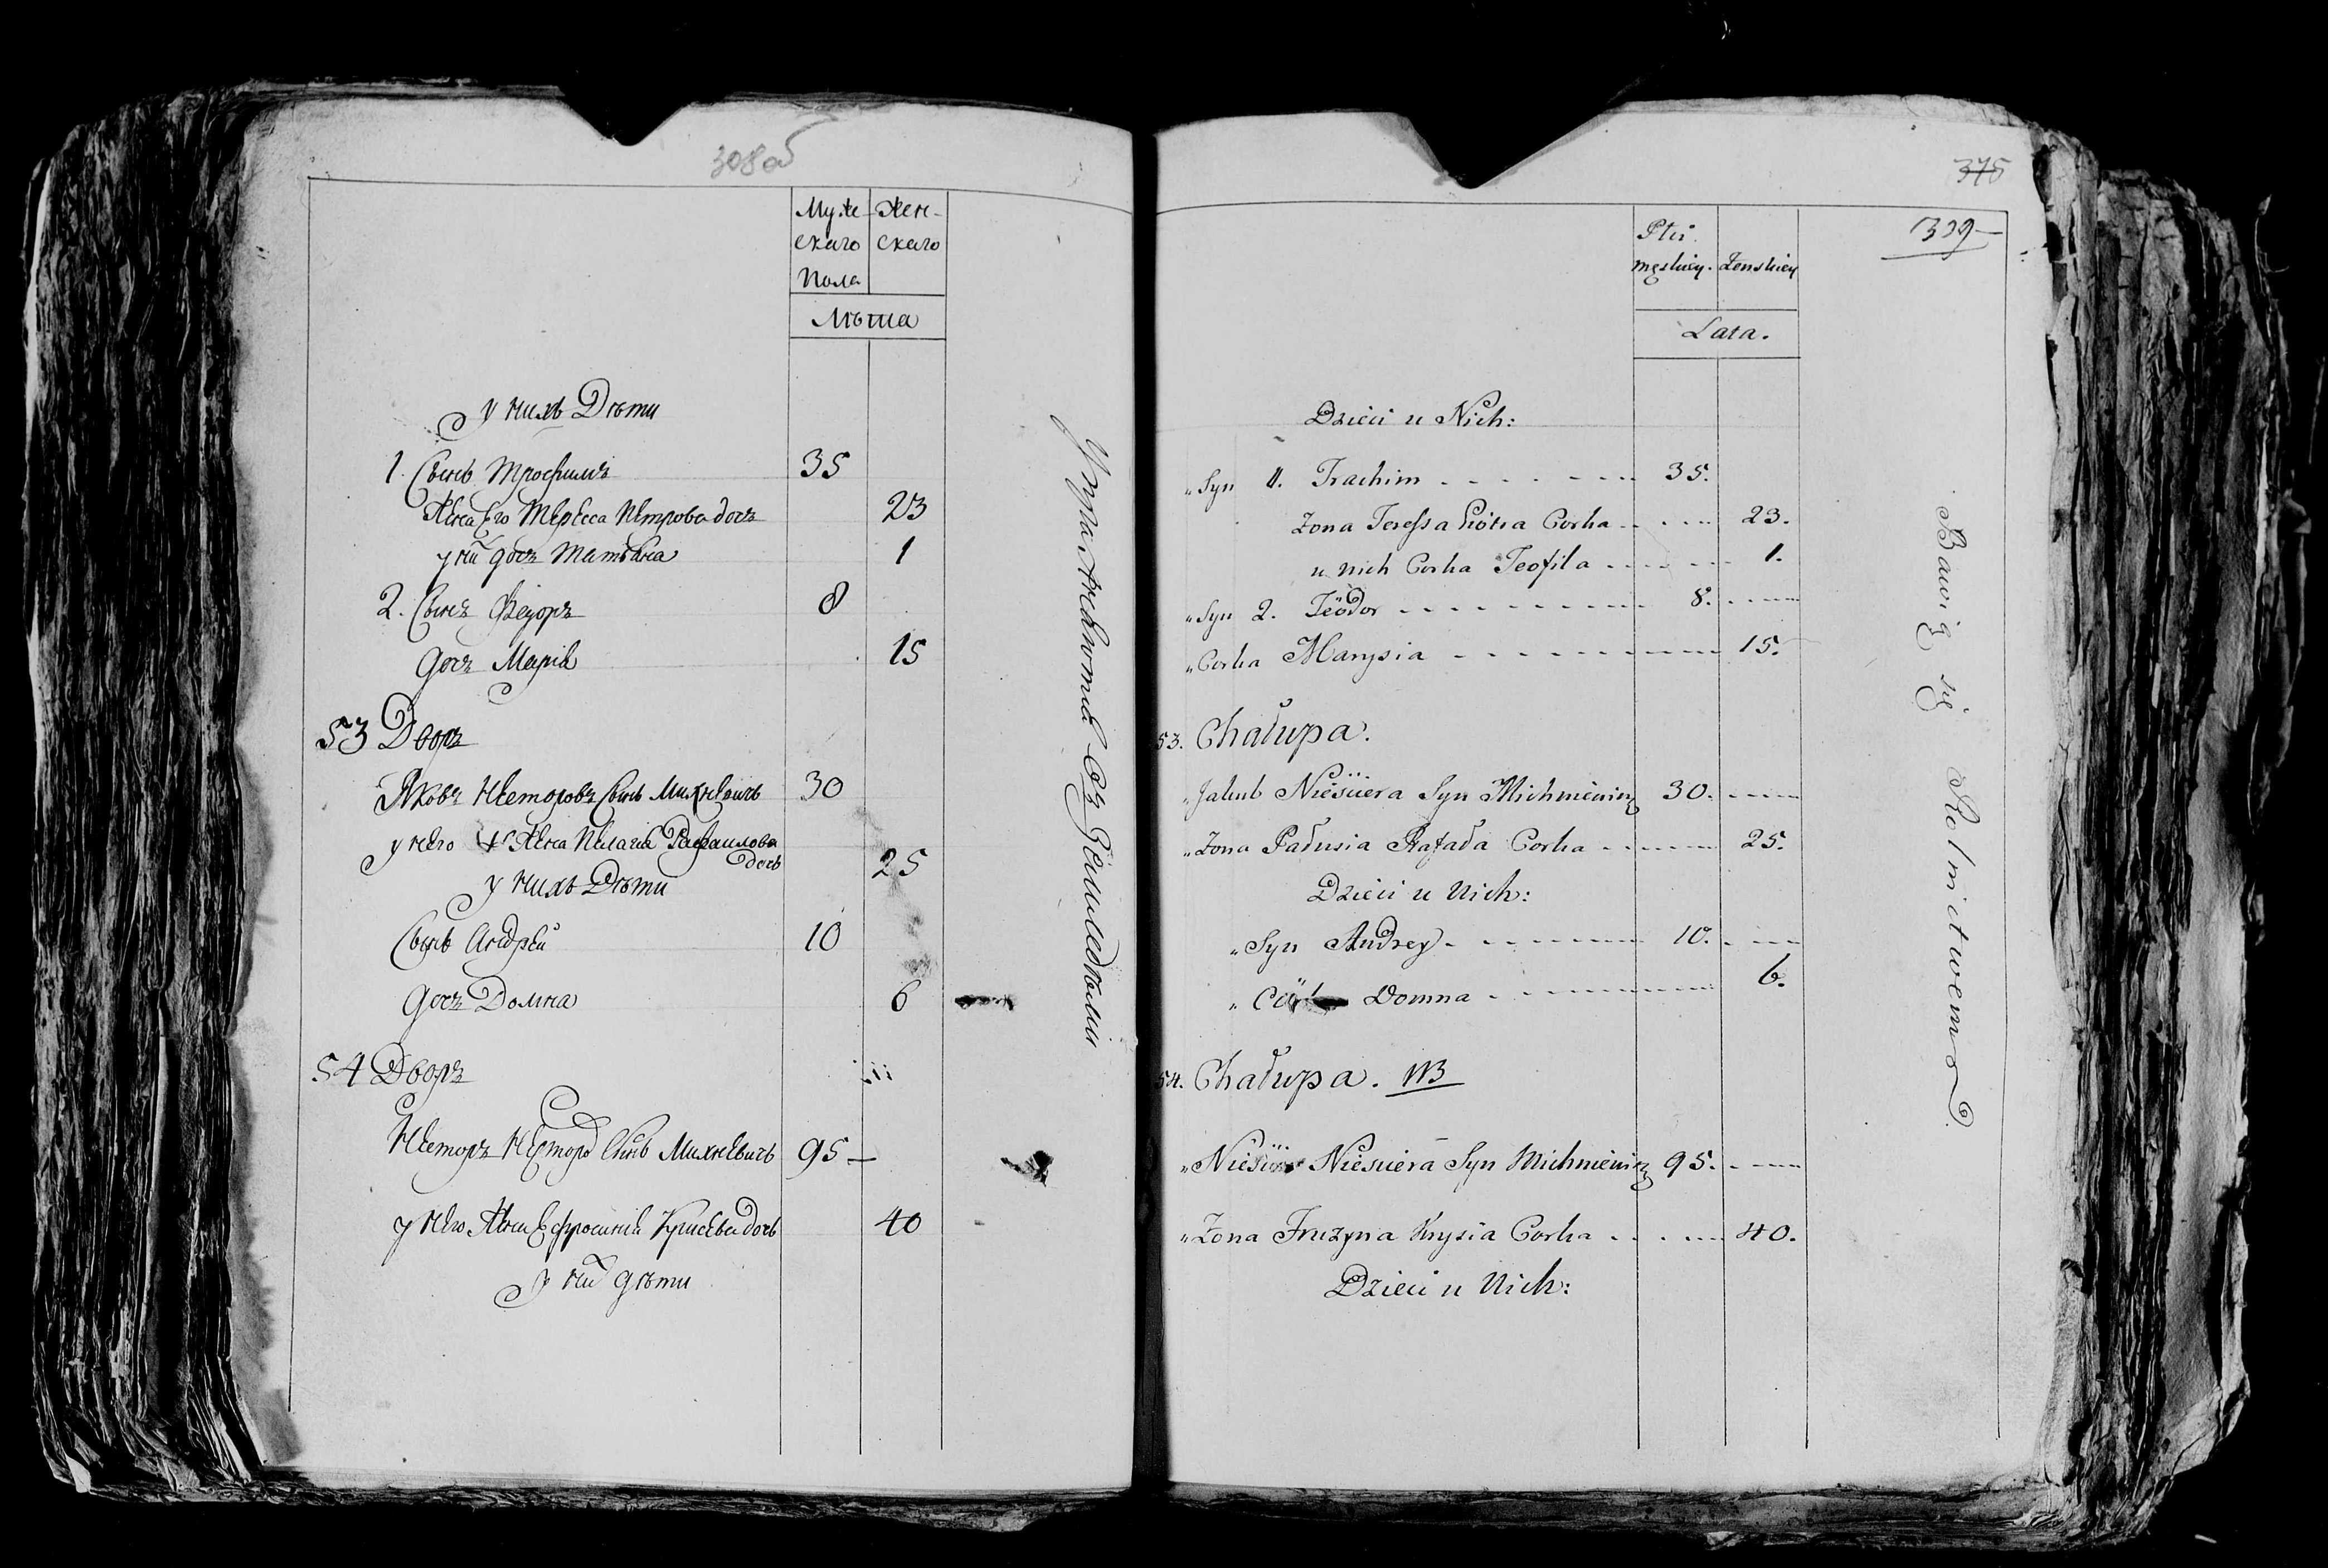 308об
Муже- Жен-
скаго скаго
Пола
Лѣта
у нихъ Дѣти
1. Сынъ Трофимъ 35
Жена Его Тересса Петрова дочь 23
у ни дочь Татьяна 1
2. Сынъ Федоръ 8
дочь Марія 15
53 Дворъ
Яковъ Несторовъ Сынъ Михневичъ 30
у него Жена Пелагія Рафаилова
дочь 25
у нихъ Дѣти
Сынъ Андрей 10
дочь Домна 6
54 Дворъ
Несторъ Нестор Сынъ Михневичъ 95
у него Жена Ефросинія дочь 40
у ни дѣти
Упражняются въ Земледѣлии
375
339
Płci
męskiey. Żenskiey
Lata.
Dzieci u Nich:
„Syn 1. Trachim 35.
Zona Teressa Piotra Corka 23.
u nich Corka Teofila 1.
„Syn 2. Teodor 8.
„Corka Marysia 15.
53. Chałupa.
„Jakub Niesciera Syn Michniewicz 30.
„Zona Pałusia Rafała Corka 25.
Dzieci u Nich:
„Syn Andrey 10.
„ Domna 6.
54. Chałupa. NB
„ Niesciera Syn Michniewicz 95.
„Zona Fruzyna Krysia Corka 40.
Dzieci u Nich:
Bawią się Rolnictwem